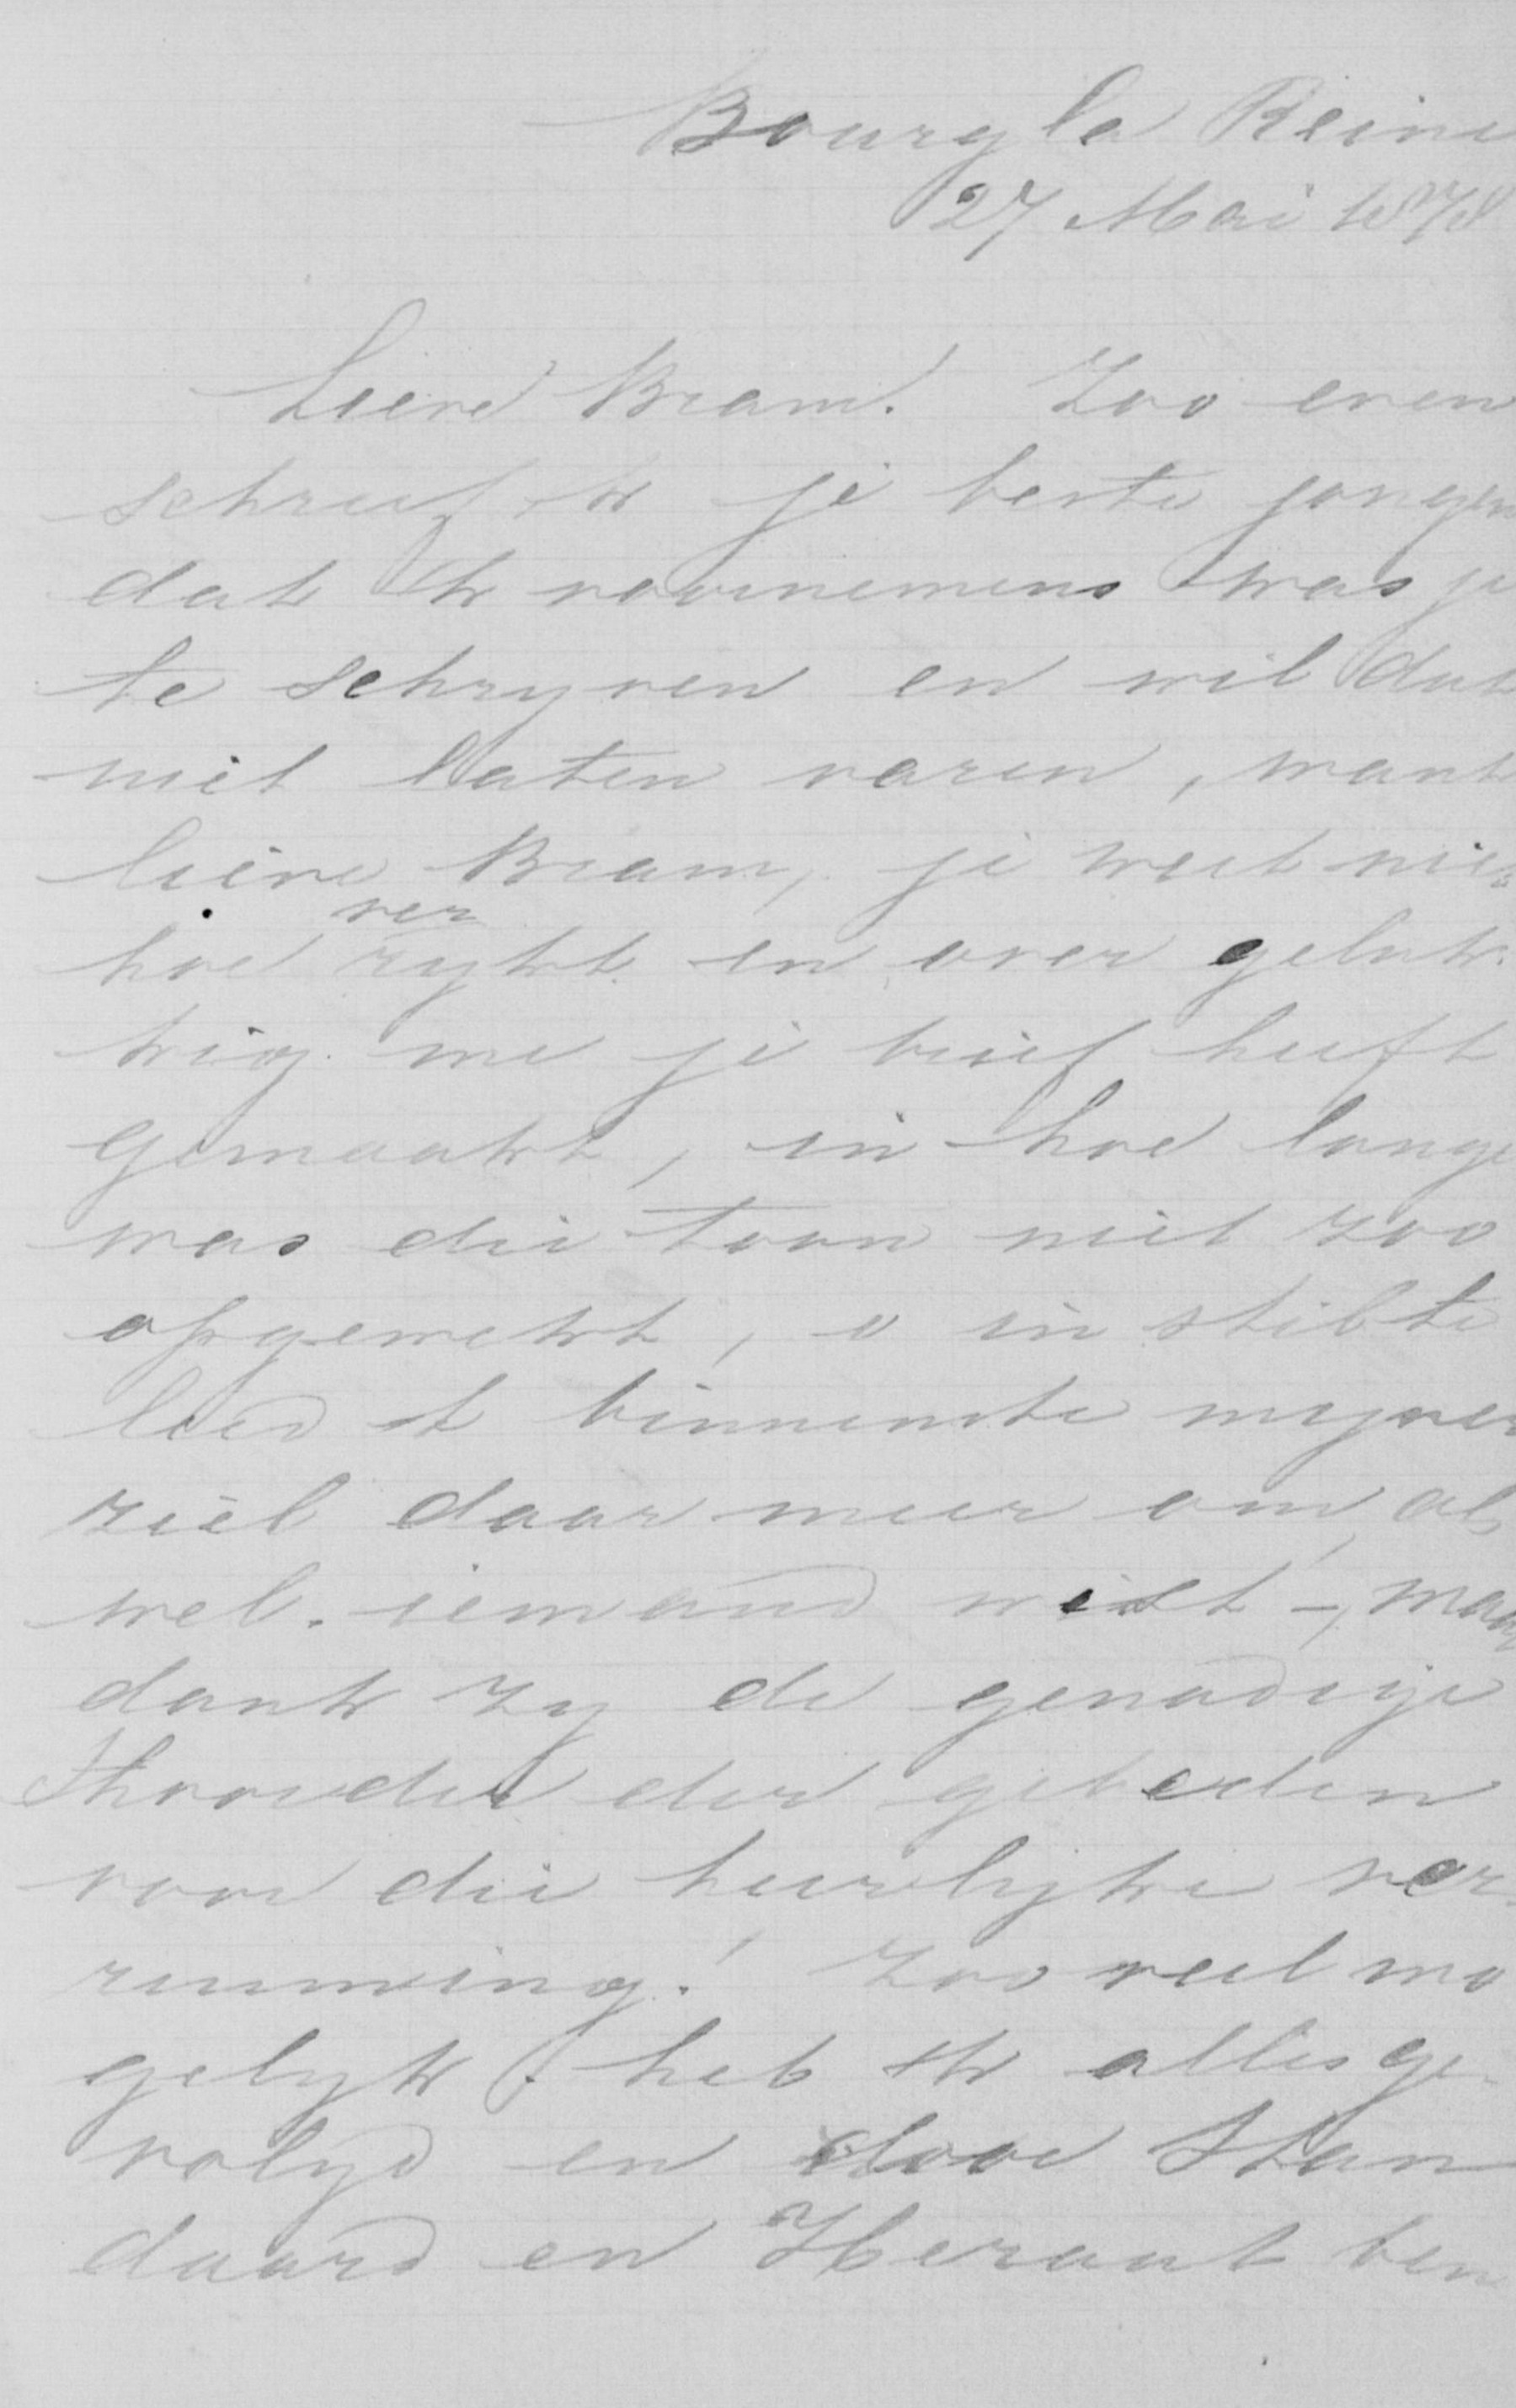 Bourg la Reine
27 Mai 1878
Lieve Bram. Zoo even
schreef ik je beste jongen
dat ik voornemens was je
te schryven en wil dat
niet laten varen, want
lieve Bram, je weet niet
hoe verrykt en over geluk
kig me je brief heeft
gemaakt, in hoe lange
was die toon niet zoo
opgewekt, o in stilte
leed 't binnenste myner
ziel daar meer om, als
wel iemand wist -, maar
dank zy de genadige
Hoorder der gebeden
voor die heerlyke ver
ruiming! Zoo veel mo
gelyk heb ik alles ge
volgd en door Stan
daard en Heraut ben